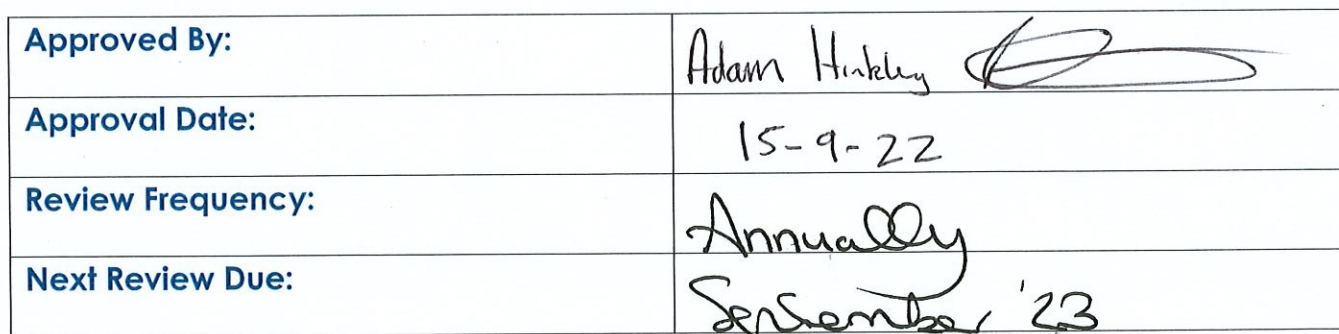 Approved By: Adam Hinkley
Approval Date: 15-9-22
Review Frequency: Annually
Next Review Due: September '23